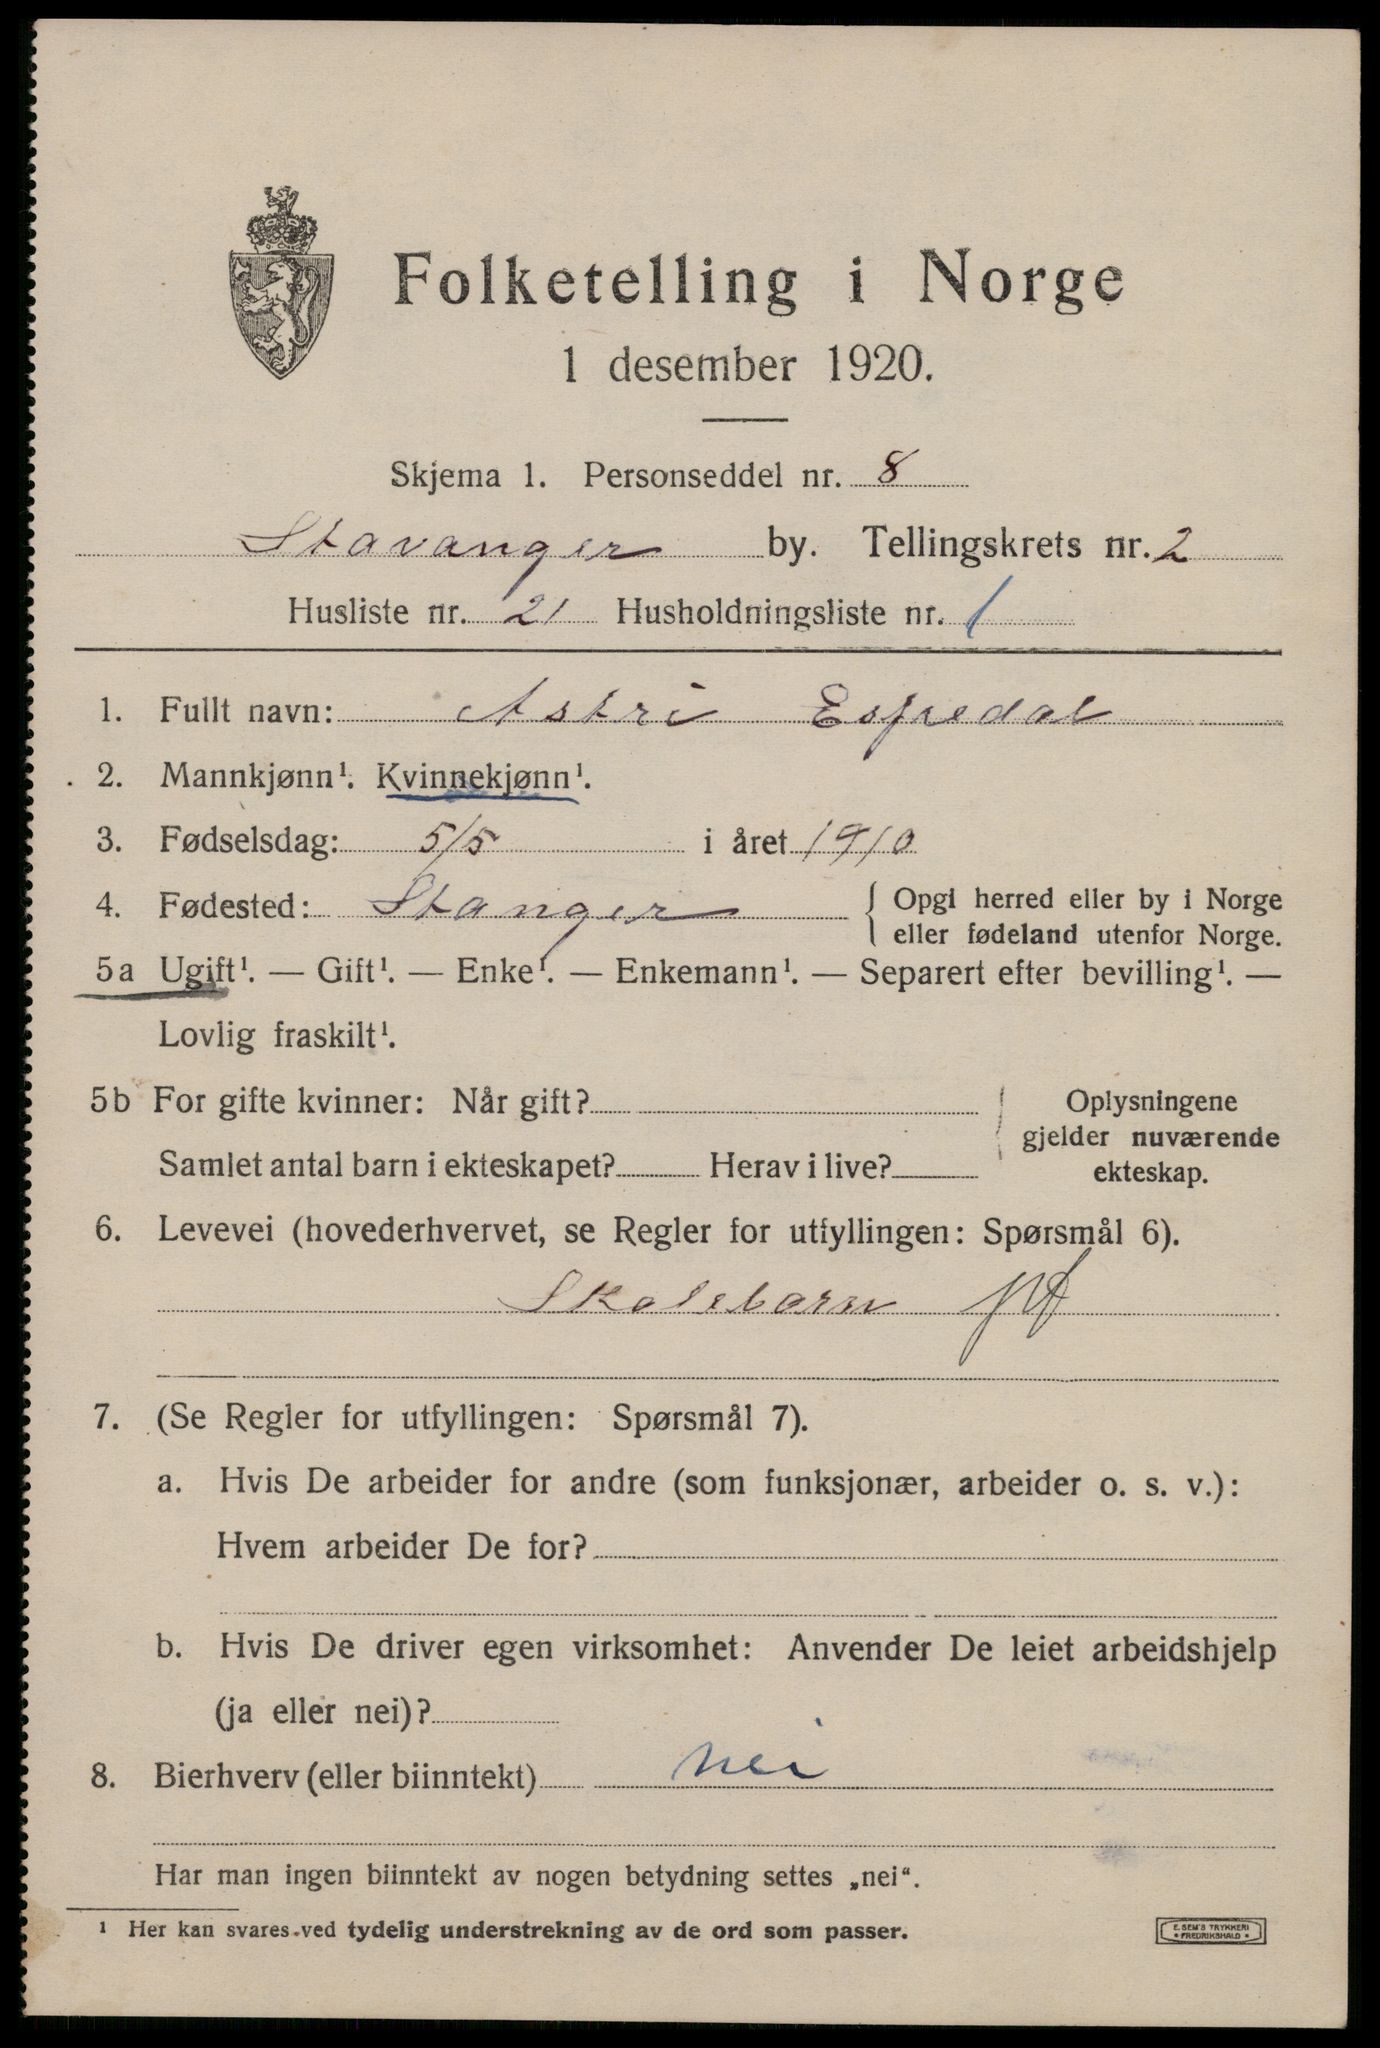 Folketelling i Norge
1 desember 1920.
Skjema 1. Personseddel nr. 8
Stavanger by. Tellingskrets nr. 2
Husliste nr. 21 Husholdningsliste nr. 1
1. Fullt navn: Astri Espedal
2. Mannkjønn¹. Kvinnekjønn¹.
3. Fødselsdag: 5/5 i året 1910
4. Fødested: Stanger { Opgi herred eller by i Norge
eller fødeland utenfor Norge.
5a Ugift¹. — Gift¹. — Enke¹. — Enkemann¹. — Separert efter bevilling¹. —
Lovlig fraskilt¹.
5b For gifte kvinner: Når gift? Oplysningene
gjelder nuværende
Samlet antal barn i ekteskapet? Herav i live? ekteskap.
6. Levevei (hovederhvervet, se Regler for utfyllingen: Spørsmål 6).
Skolebarn
7. (Se Regler for utfyllingen: Spørsmål 7).
a. Hvis De arbeider for andre (som funksjonær, arbeider o. s. v.):
Hvem arbeider De for?
b. Hvis De driver egen virksomhet: Anvender De leiet arbeidshjelp
(ja eller nei)?
8. Bierhverv (eller biinntekt) nei
Har man ingen biinntekt av nogen betydning settes „nei“.
¹ Her kan svares ved tydelig understrekning av de ord som passer.
E. SEM'S TRYKKERI
• FREDRIKSHALD •